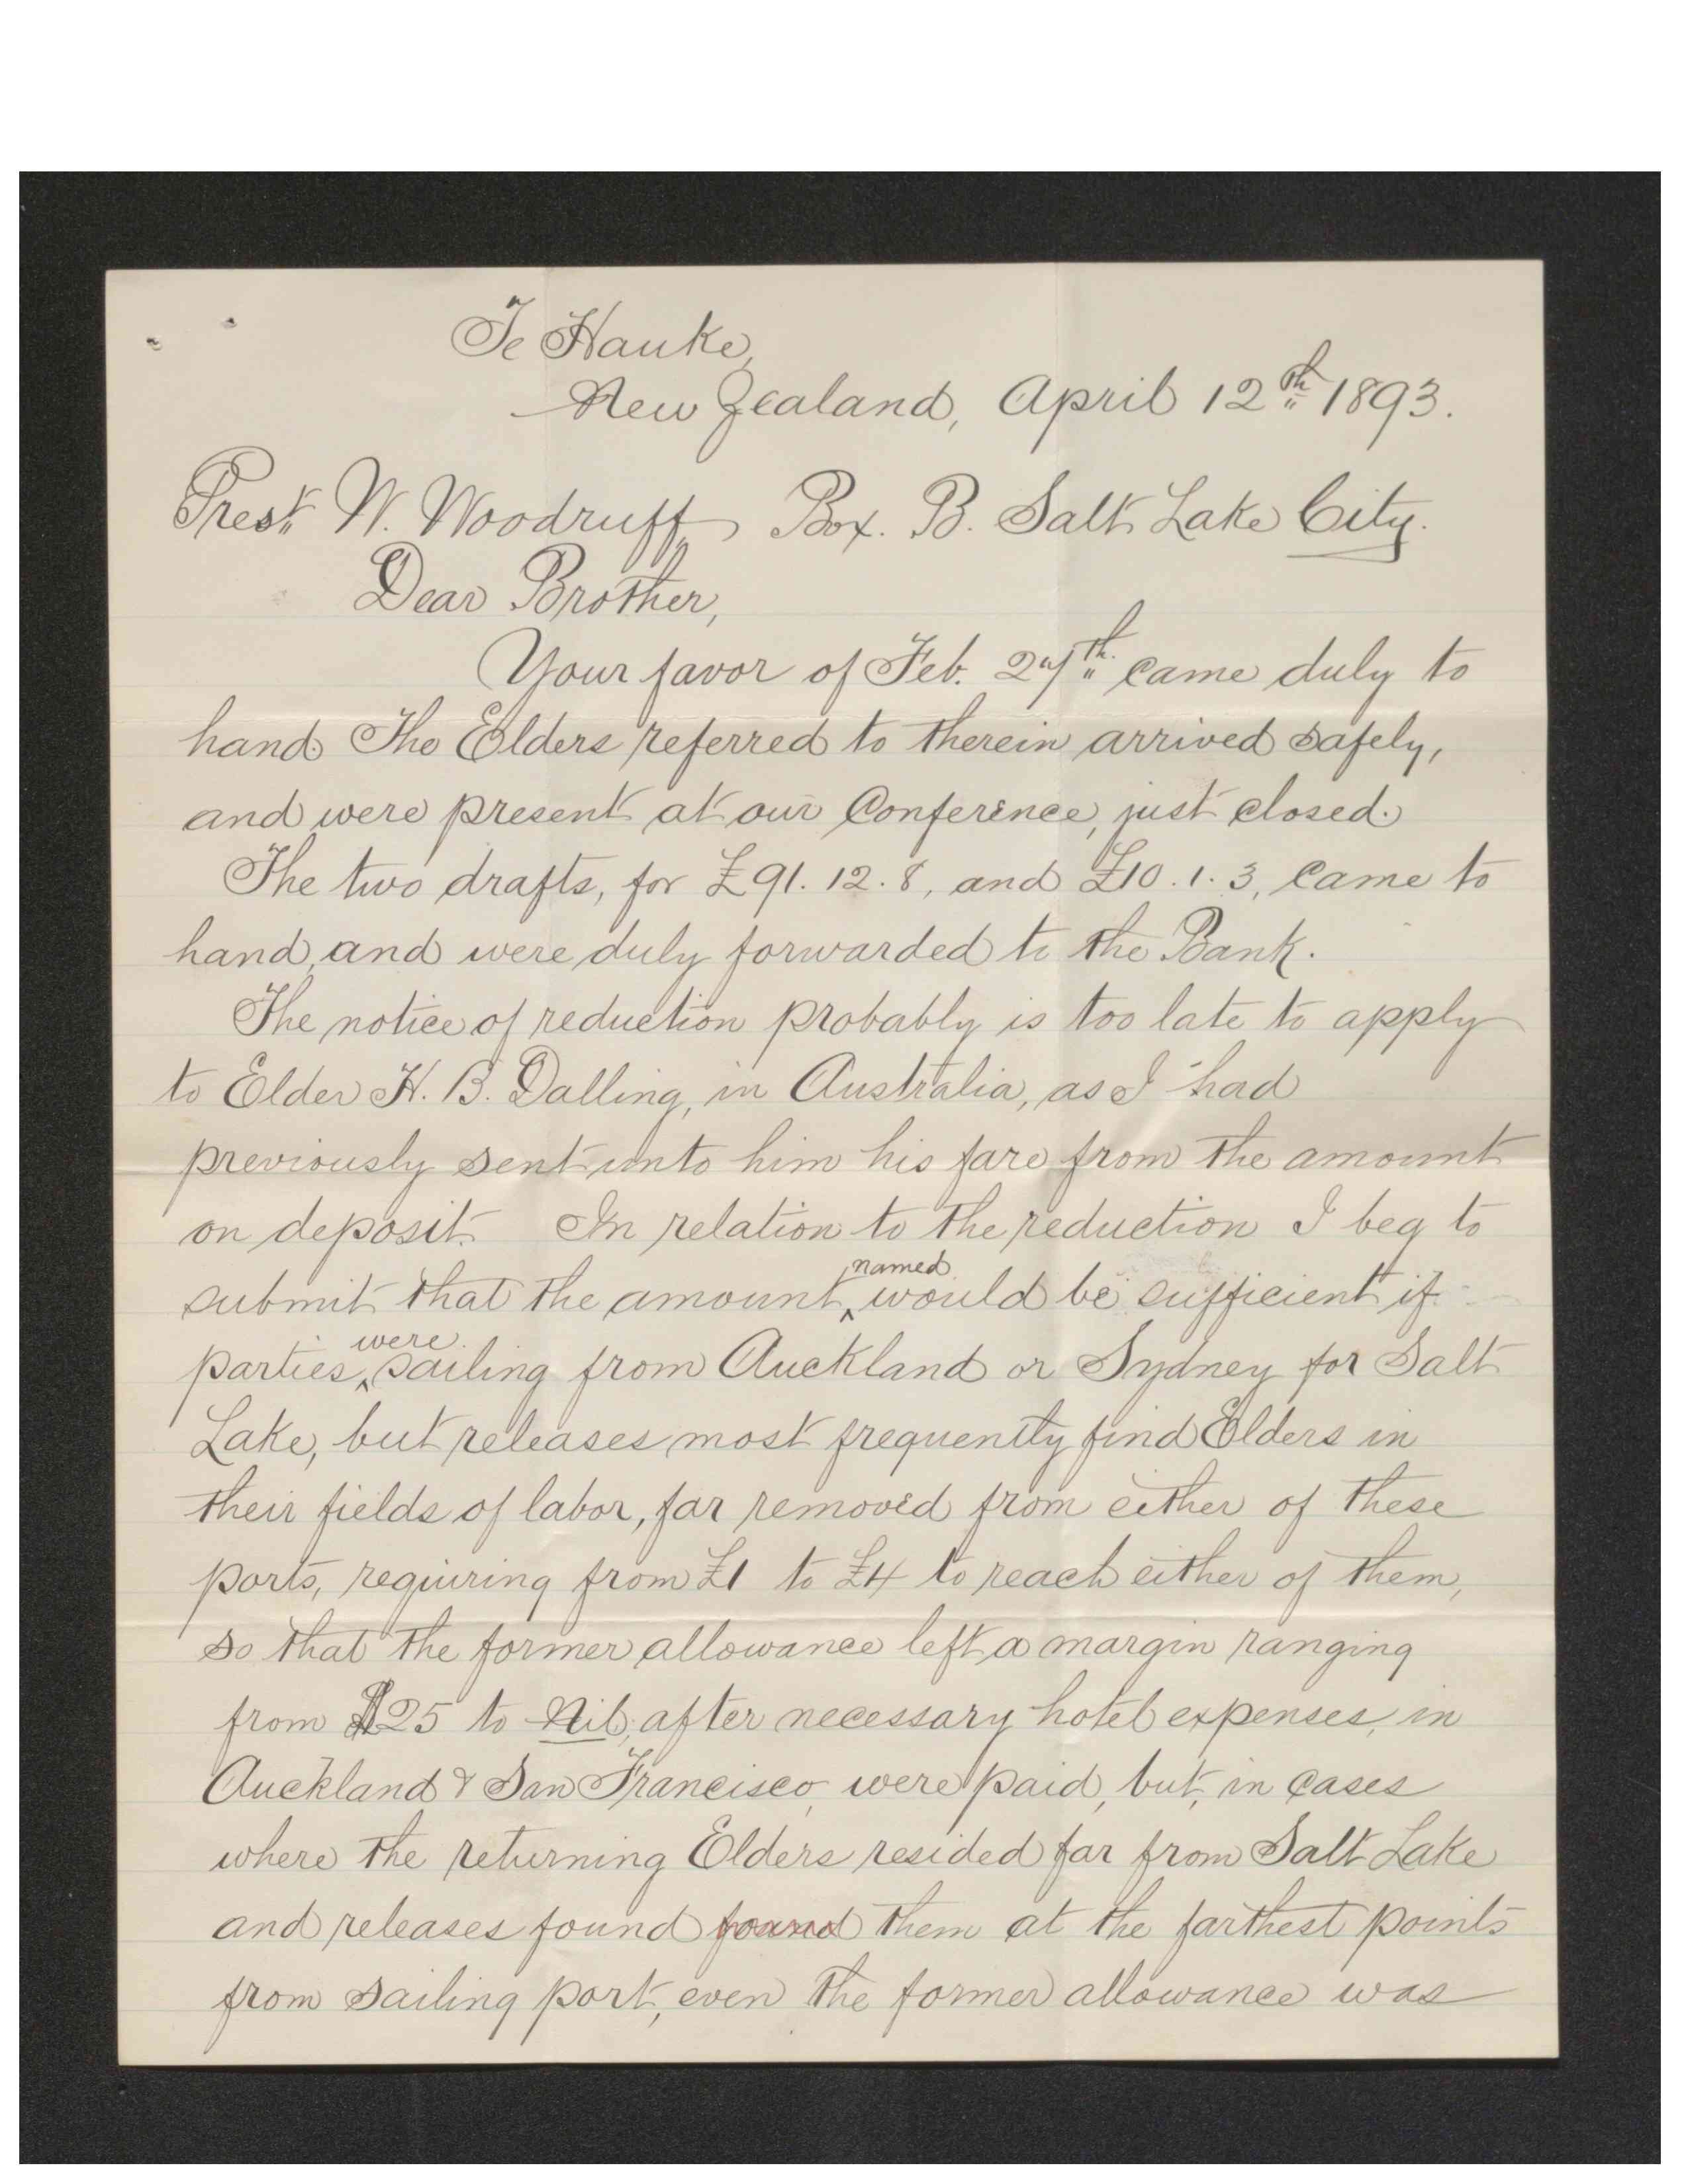 Te Hauke,
New Zealand, April 12th 1893.
Prest W. Woodruff, Box. B. Salt Lake City.
Dear Brother,
Your favor of Feb. 27th. came duly to
hand. The Elders referred to therein arrived safely,
and were present at our Conference, just closed.
The two drafts, for £91. 12. 8, and £10. 1. 3, came to
hand, and were duly forwarded to the Bank.
The notice of reduction probably is too late to apply
to Elder H. B. Dalling, in Australia, as I had
previously sent unto him his fare from the amount
on deposit. In relation to the reduction I beg to
submit that the amount ^named would be sufficient if
parties ^were sailing from Auckland or Sydney for Salt
Lake, but releases most frequently find Elders in
their fields of labor, far removed from either of these
ports, requiring from £1 to £4 to reach either of them,
so that the former allowance left a margin ranging
from $25 to Nil, after necessary hotel expenses, in
Auckland & San Francisco, were paid, but, in cases
where the returning Elders resided far from Salt Lake
and releases found found them at the farthest points
from sailing port, even the former allowance was